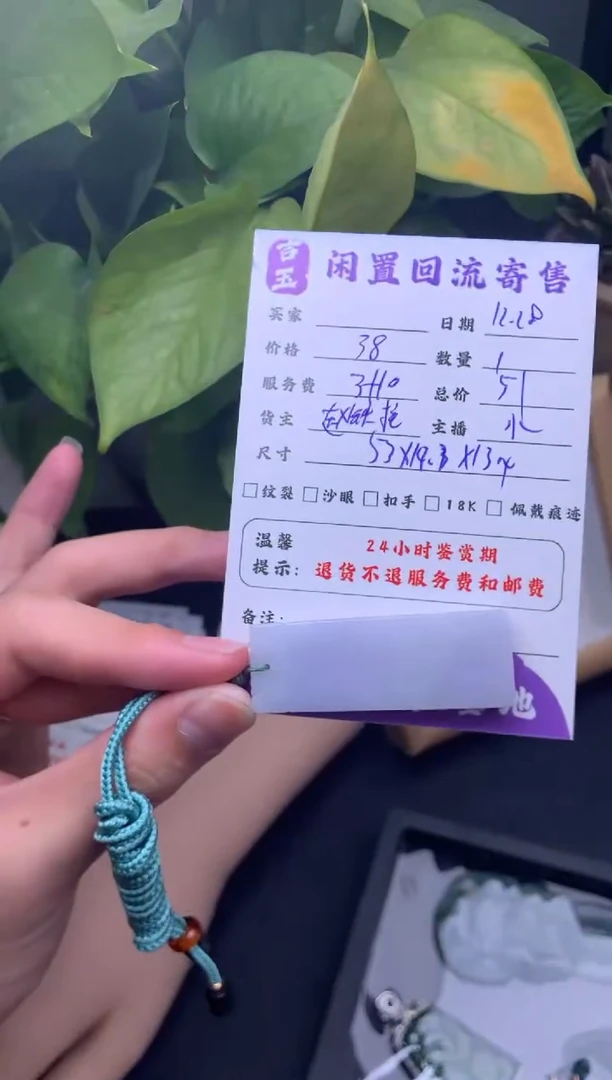 吉玉 闲置回流寄售
买家 日期 11.28
价格 38 数量 1
服务费 3+10 总价 51
货主 主播
尺寸 53X14.3X13
纹裂 沙眼 扣手 18K 佩戴痕迹
温馨 24小时鉴赏期
提示: 退货不退服务费和邮费
备注:
地